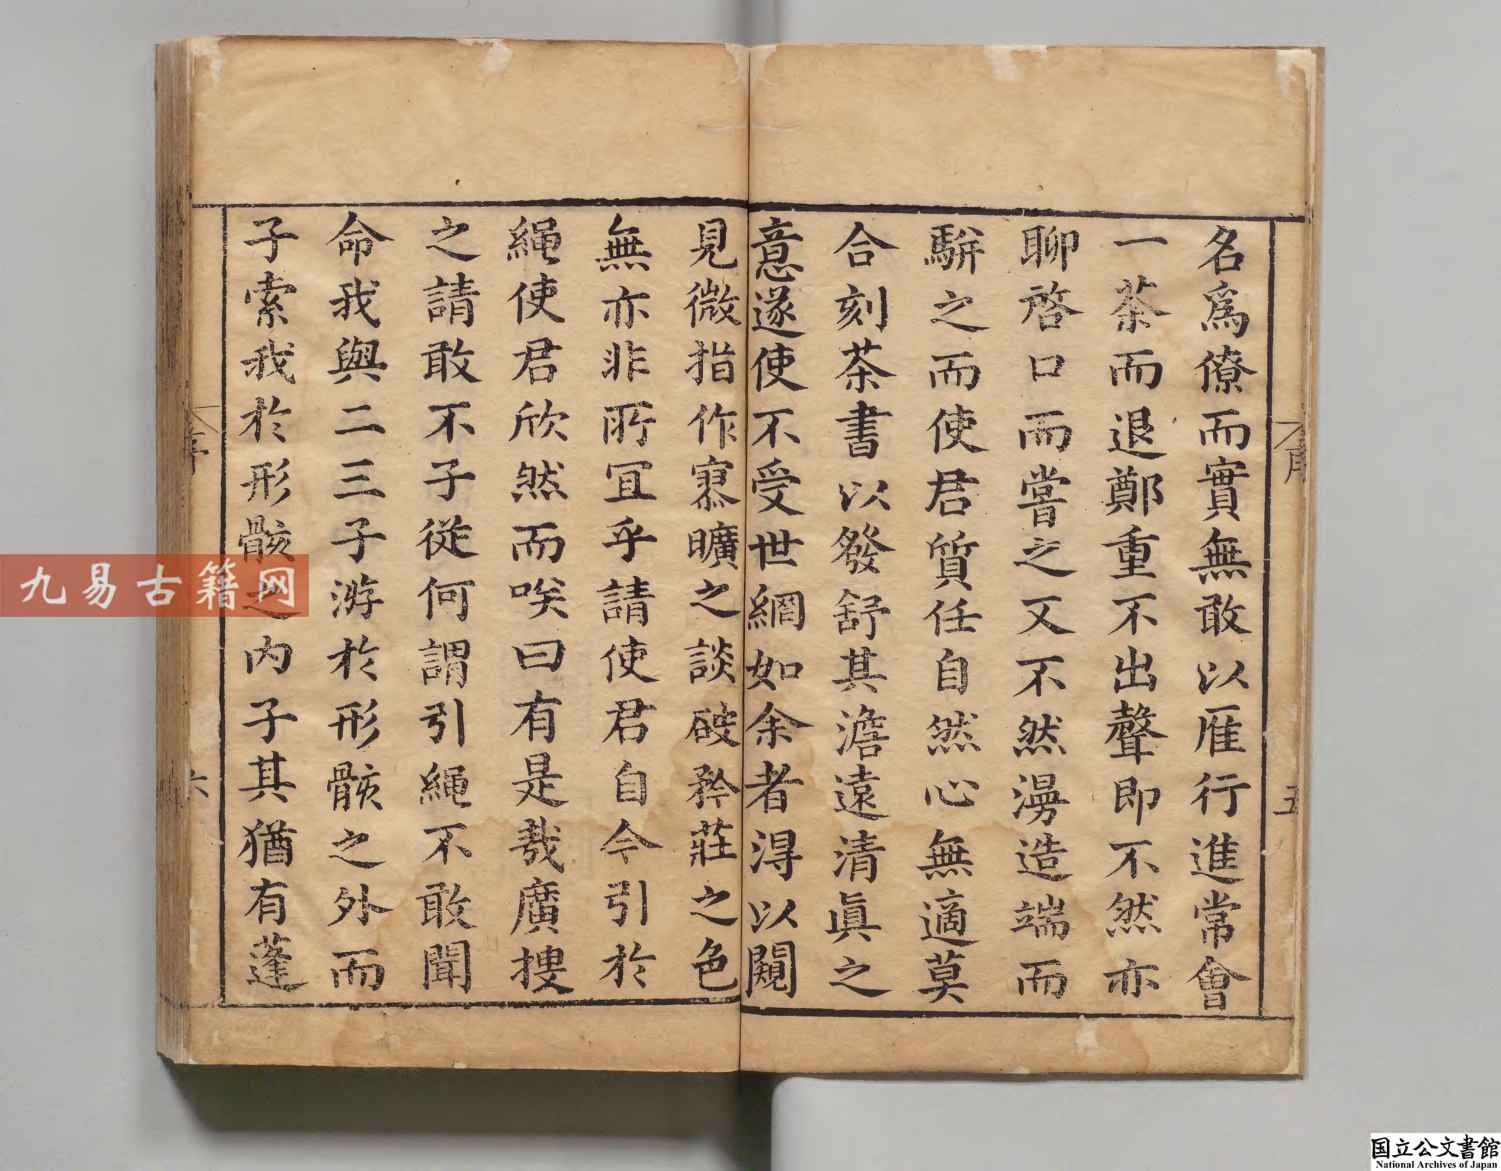 名爲僚而實無敢以雁行進常會
一茶而退鄭重不出聲即不然亦
聊啓口而嘗之又不然漫造端而
駢之而使君質任自然心無適莫
合刻茶書以發舒其澹遠清眞之
意遂使不受世網如余者得以闚
見微指作寥曠之談破矜莊之色
無亦非所宜乎請使君自今引於
繩使君欣然而唉曰有是哉廣摟
之請敢不子從何謂引繩不敢聞
命我與二三子游於形骸之外而
子索我於形骸之內子其猶有蓬
序
五
六
九易古籍网
国立公文書館
National Archives of Japan